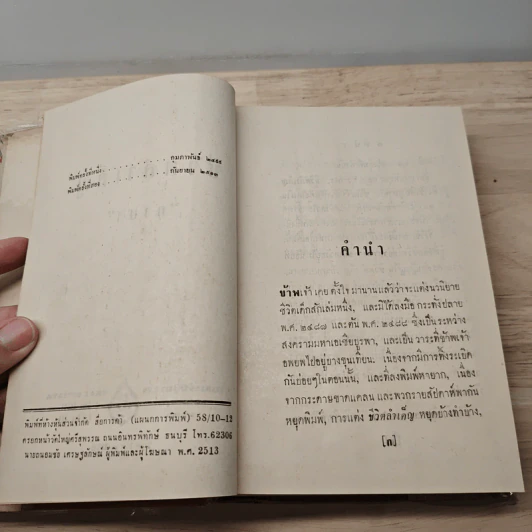 พิมพ์ครั้งที่หนึ่ง . . . . . . . . กุมภาพันธ์ ๒๔๙๕
พิมพ์ครั้งที่สอง . . . . . . . . กันยายน ๒๕๑๓
พิมพ์ที่ห้างหุ้นส่วนจำกัด สื่อการค้า (แผนกการพิมพ์) 58/10-12
ตรอกหน้าวัดใหญ่ศรีสุพรรณ ถนนอินทรพิทักษ์ ธนบุรี โทร. 62306
นายถนอมชัย เศรษฐลักษณ์ ผู้พิมพ์และผู้โฆษณา พ.ศ. 2513
คำนำ
ข้าพเจ้า เคยตั้งใจมานานแล้วว่าจะแต่งนวนิยาย
ชีวิตเด็กสักเล่มหนึ่ง, และมิได้ลงมือ กระทั่งปลาย
พ.ศ. ๒๔๘๗ และต้น พ.ศ. ๒๔๘๘ ซึ่งเป็นระหว่าง
สงครามมหาเอเชียบูรพา, และเป็นวาระที่ข้าพเจ้า
อพยพไปอยู่บางขุนเทียน. เนื่องจากมีการทิ้งระเบิด
กันบ่อยๆในตอนนั้น, และที่ลงพิมพ์หายาก, เนื่อง
จากกระดาษขาดแคลน และพวกรายสัปดาห์พากัน
หยุดพิมพ์, การแต่ง ชีวิตลำเค็ญ หยุดบ้างทำบ้าง,
[ก]